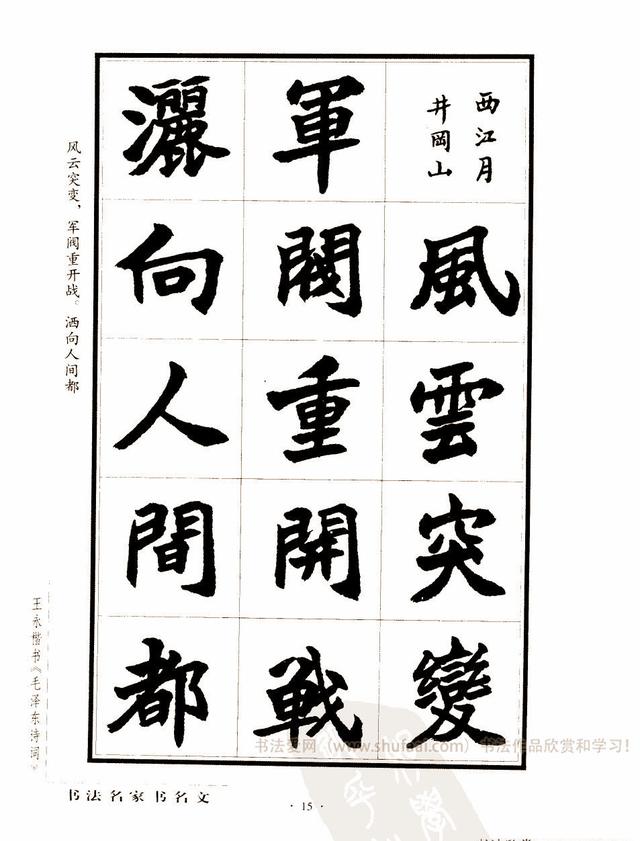 西江月
井岡山
風雲突變
軍閥重開戰
灑向人間都
风云突变，军阀重开战。洒向人间都
王永楷书《毛泽东诗词》
书法名家书名文
· 15 ·
书法爱网（www.shufaai.com）书法作品欣赏和学习！